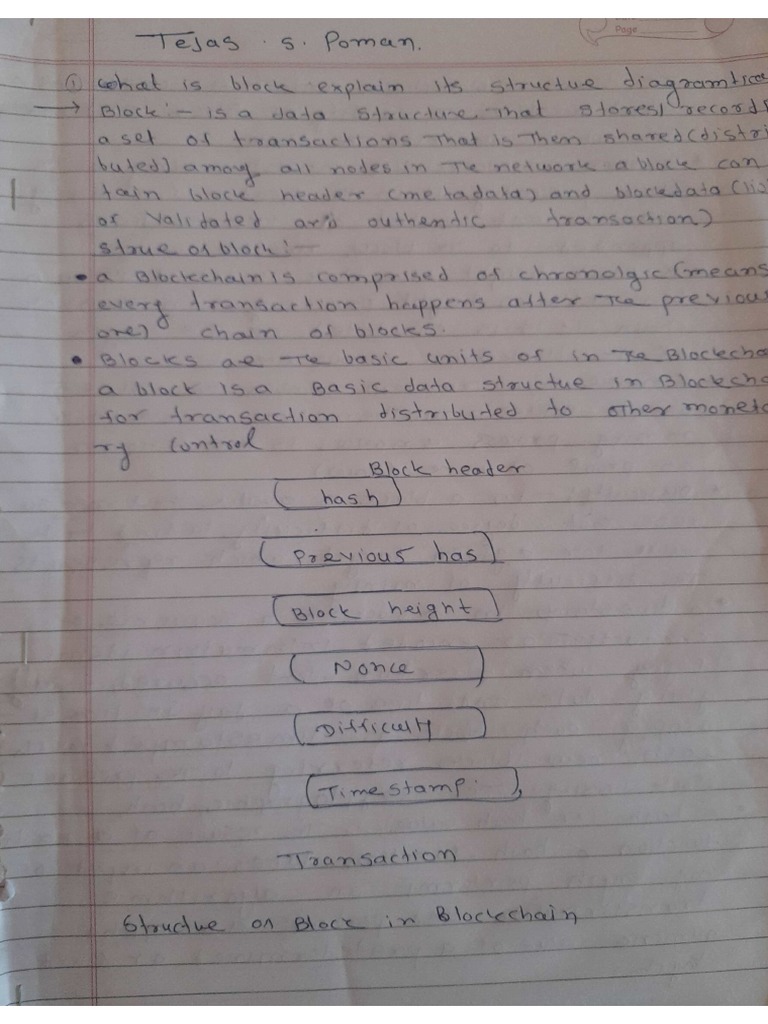 Page
Tejas . S. Poman.
① what is block explain its structue diagramtica
→ Block :- is a data structure that stores/records
a set of transactions that is then shared (distri
buted) among all nodes in the network a block con
tain block header (metadata) and blockdata (lis
of validated and outhentic transaction)
strue of block :-
• a Blockchain is comprised of chronolgic (means
every transaction happens after the previous
one) chain of blocks.
• Blocks are the basic units of in the Blockcha
a block is a Basic data structue in Blockcha
for transaction distributed to other moneta
ry control
Block header
hash
Previous has
Block height
Nonce
Difficulty
Timestamp.
Transaction
Structue of Block in Blockchain